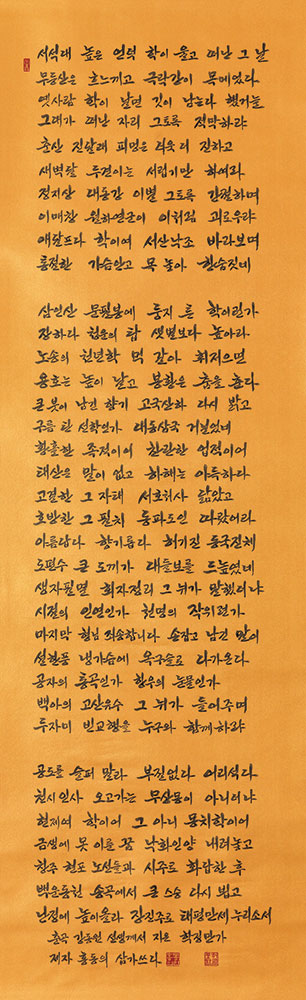 서석대 높은 언덕 학이 울고 떠난 그 날
무등산은 흐느끼고 극락강이 목메었다
옛사람 학이 날면 깃이 남는다 했거늘
그대가 떠난 자리 그토록 적막하랴
춘산 진달래 피멍은 더욱 더 진하고
새벽달 두견이는 서럽기만 하여라
정지상 대동강 이별 그토록 간절하며
이매창 월하연군이 이처럼 괴로우랴
애달프다 학이여 서산낙조 바라보며
통절한 가슴안고 목 놓아 한숨짓네
삼인산 문필봉에 둥지 튼 학이런가
장하다 청운의 탑 샛별보다 높아라
노송의 천년학 먹 갈아 휘저으면
용호는 높이 날고 봉황은 춤을 춘다
큰 붓이 남긴 향기 고국산하 다시 밝고
구름 탄 선학인가 대동삼국 거닐었네
황홀한 족적이여 찬란한 업적이여
태산은 말이 없고 하해는 아득하다
고결한 그 자태 서호처사 닮았고
호방한 그 필치 동파도인 따랐어라
아름답다 향기롭다 허기진 동국진체
도편수 큰 도끼가 대들보를 드높였네
생자필멸 회자정리 그 뉘가 말했더냐
시절의 인연인가 천명의 작위런가
마지막 형님 죄송합니다 손잡고 남긴 말이
설한풍 냉가슴에 옥구슬로 다가온다
공자의 통곡인가 항우의 눈물인가
백아의 고산유수 그 뉘가 들어주며
두자미 빈교행을 누구와 함께하랴
공도를 슬퍼 말라 부질없다 어리석다
천시인사 오고가는 무상몽이 아니더냐
현제여 학이여 그 아니 몽치학이어
금생에 못 이룬 꿈 낙화인양 내려놓고
창주 현포 노선들과 시주로 화답한 후
백운동천 송곡에서 큰 스승 다시 뵙고
난정에 높이올라 장진주로 태평만세 누리소서
춘곡 강동원 선생께서 지은 학정만가
제자 홍동의 삼가쓰다